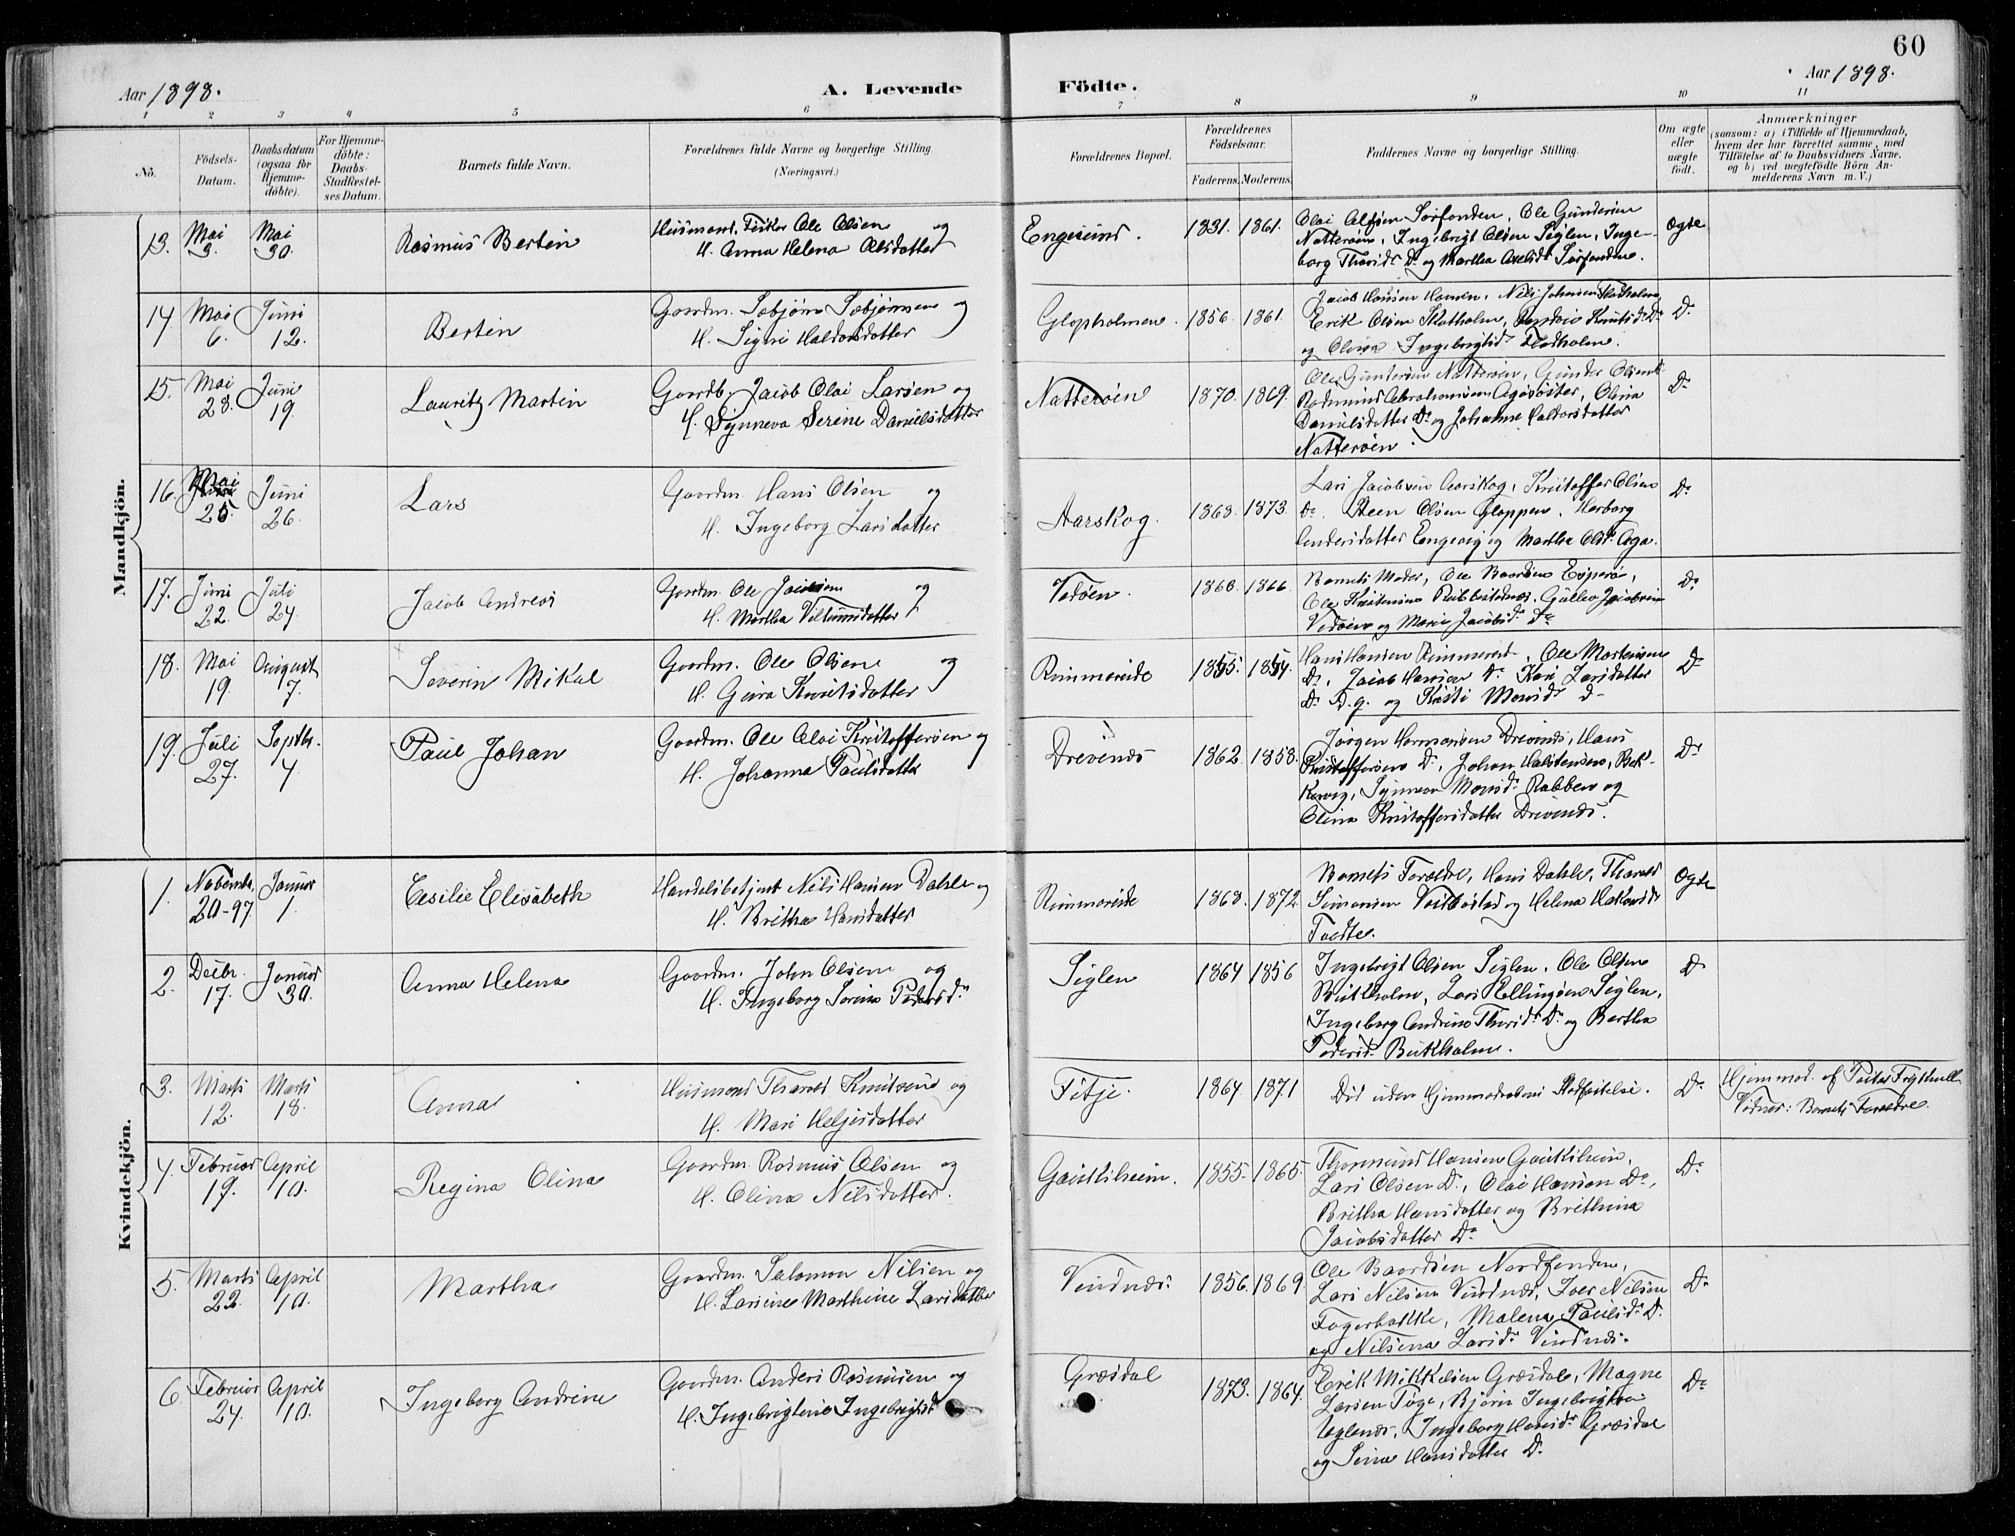 60
Aar 1898.
A. Levende
Födte.
Aar 1898.
1 2 3 4 5 6 7 8 9 10 11
No.
Födsels-Datum.
Daabsdatum (ogsaa for Hjemme-döbte).
For Hjemme-döbte: Daabs-Stadfæstel-ses Datum.
Barnets fulde Navn.
Forældrenes fulde Navne og borgerlige Stilling.
(Næringsvei.)
Forældrenes Bopæl.
Forældrenes Födselsaar.
Faderens. Moderens.
Faddernes Navne og borgerlige Stilling.
Om ægte eller uægte födt.
Anmærkninger
(saasom: a) i Tilfælde af Hjemmedaab,
hvem der har forrettet samme, med
Tilföielse af to Daabsvidners Navne,
og b) ved uegtefödte Börn An-
melderens Navn m. V.)
Mandkjön.
13. Mai 3. Mai 30. Rasmus Bertin
Husmand, Fisker Ole Olsen og
H. Anna Helena Olsdatter
Engesund. 1831. 1861.
Olai Olsen Sørfonden, Ole Gundersen
Natterøen, Ingebrigt Olsen Siglen, Inge-
borg Thorsdr. Do og Martha Sørfonden.
Ægte
14 Mai 6. Juni 12. Bertin
Gaardm. Sæbjørn Sæbjørnsen og
H. Signi Haldorsdatter
Glopholmen. 1856. 1861.
Jacob Hansen Nils Johansen
Erik Olsen Knutsdr. Do
og Olina Ingebrigtsd.
Do
15. Mai 28. Juni 19. Lauritz Martin
Gaardb. Jacob Olai Larsen og
H. Synneva Serine Danielsdatter
Natterøen 1870. 1869.
Ole Gundersen Natterøen, Gunder Olsen
Abrahamsen Olina
Danielsdatter Do og Johanne Haldorsdatter
Natterøen.
Do
16. Mai 25. Juni 26. Lars
Gaardm. Hans Olsen og
H. Ingeborg Larsdatter
Aarskog. 1868. 1873.
Lars Jacobsen Aarskog, Kristoffer Olsen
Do. Steen Olsen Gloppen, Herborg
Andersdatter Engevig og Martha Olsdr. Aga.
Do
17. Juni 22. Juli 24. Jacob Andreas
Gaardm. Ole Jacobsen og
H. Martha Viltumsdatter
Vedøen. 1868. 1866.
Barnets Moder, Ole Baardsen
Ole Kristensen Gullev Jacobsen
Vedøen og Marie Jacobsd. Do
Do
18. Mai 19. August 7. Severin Mikal
Gaardm. Ole Olsen og
H. Gura Knutsdatter
Rimmereide 1855. 1854.
Hans Hansen Rimmereid, Ole Mortensen
Do, Jacob Hansen Do Kari Larsdatter
Do D.g. og Kristi Monsdr. D-
Do
19. Juli 27. Septbr. 4. Paul Johan
Gaardm. Ole Olai Kristoffersen og
H. Johanna Paulsdatter
Drevsnes 1862. 1858.
Jørgen Hermansen Drevsnes, Hans
Kristoffersen Do, Johan Halstensen, Bek-
kervig, Synneva Monsd. Rabben og
Olina Kristoffersdatter Drevsnes.
Do
Kvindekjön.
1. Novembr. 20-97. Januar 1. Cesilie Elisabeth
Handelsbetjent Nils Hansen Dahle og
H. Britha Hansdatter
Rimmereide 1868. 1872.
Barnets Forældre, Hans Dahle, Thorvald
Simonsen og Helena
Ægte
2. Decbr. 17. Januar 30. Anna Helena
Gaardm. John Olsen og
H. Ingeborg Serina Pedersdr.
Siglen 1864 1856
Ingebrigt Olsen Siglen, Ole Olsen
Bukholm, Lars Ellingsen Siglen,
Ingeborg Andrine Thorsdr. Do og Bertha
Pedersdr. Bukholm.
Do
3. Marts 12. Marts 18. Anna
Husmand Tharald Knutsen og
H. Mari Helgesdatter
Fitje. 1864. 1871
Død uden Hjemmedaabens Stadfæstelse.
Do
Hjemmed. af Peter
Vidner: Barnets Forældre.
4. Februar 19. April 10. Regina Olina
Gaardm. Rasmus Olsen og
H. Olina Nilsdatter.
Gauksheim. 1855. 1865.
Thormund Hansen Gauksheim,
Lars Olsen D., Olai Hansen Do,
Britha Hansdatter og Brithina
Jacobsdatter Do
Do
5. Marts 22. April 10. Martha
Gaardm. Salomon Nilsen og
H. Larsine Marthine Larsdatter
Vindnæs. 1856. 1869.
Ole Baardsen Nordfonden,
Lars Nilsen Vindnæs, Iver Nilsen
Fagerbakke, Malena Paulsdr. D.
og Nilsina Larsdr. Vindnæs.
Do
6. Februar 24. April 10. Ingeborg Andrine
Gaardm. Anders Rasmusen og
H. Ingebrigtine Ingebrigtsd.
Græsdal 1873. 1864.
Erik Mikkelsen Græsdal, Magne
Larsen Tøge, Bjørn Ingebrigtsen
Uglenes, Ingeborg Hansdr. Græsdal
og Sina Hansdatter D.
Do